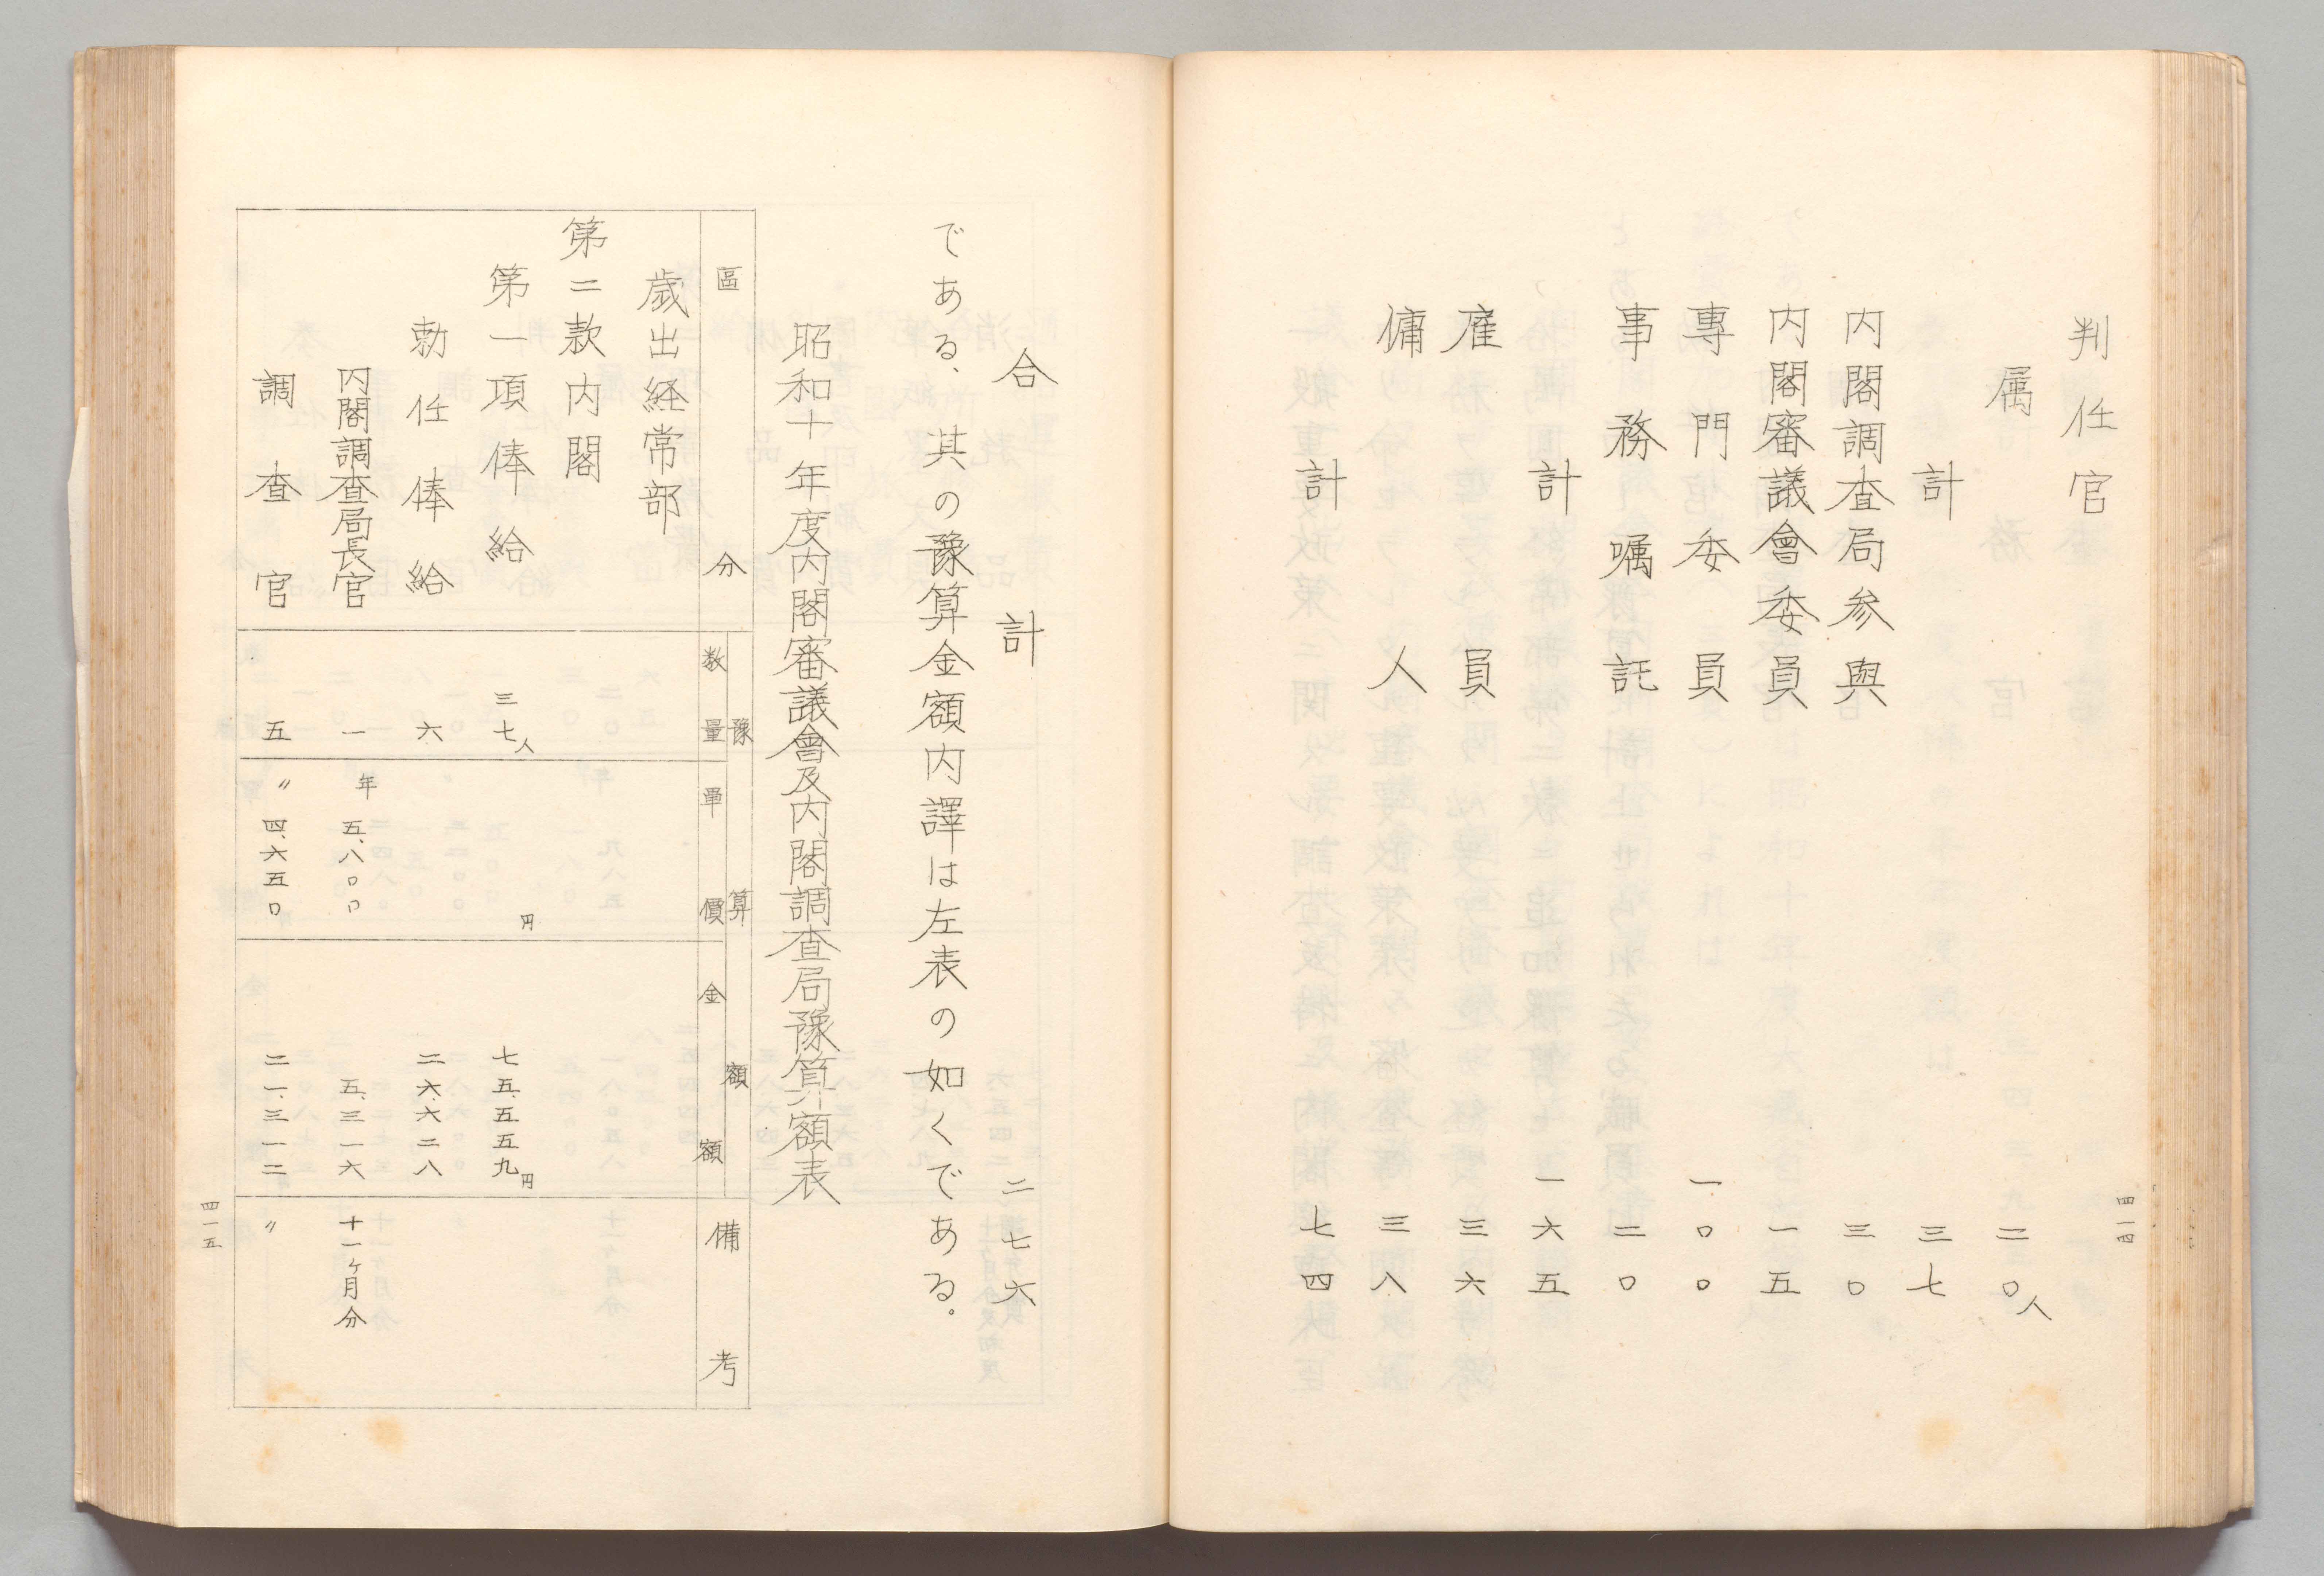 判任官
属 二〇人
計 三七
内閣調査局参與 三〇
内閣審議會委員 一五
專門委員 一〇〇
事務嘱託 二〇
計 一六五
雇員 三六
傭人 三八
計 七四
四一四
合計 二七六
である、其の豫算金額内譯は左表の如くである。
昭和十年度内閣審議會及内閣調査局豫算額表
區分 豫算額 備考
数量 單價 金額
歳出経常部
第二款内閣
第一項俸給 三七人 円 七五、五五九円
勅任俸給 六 二六、六二八
内閣調査局長官 一 年 五、八〇〇 五、三一六 十一ヶ月分
調査官 五 〃 四、六五〇 二一、三一二 〃
四一五